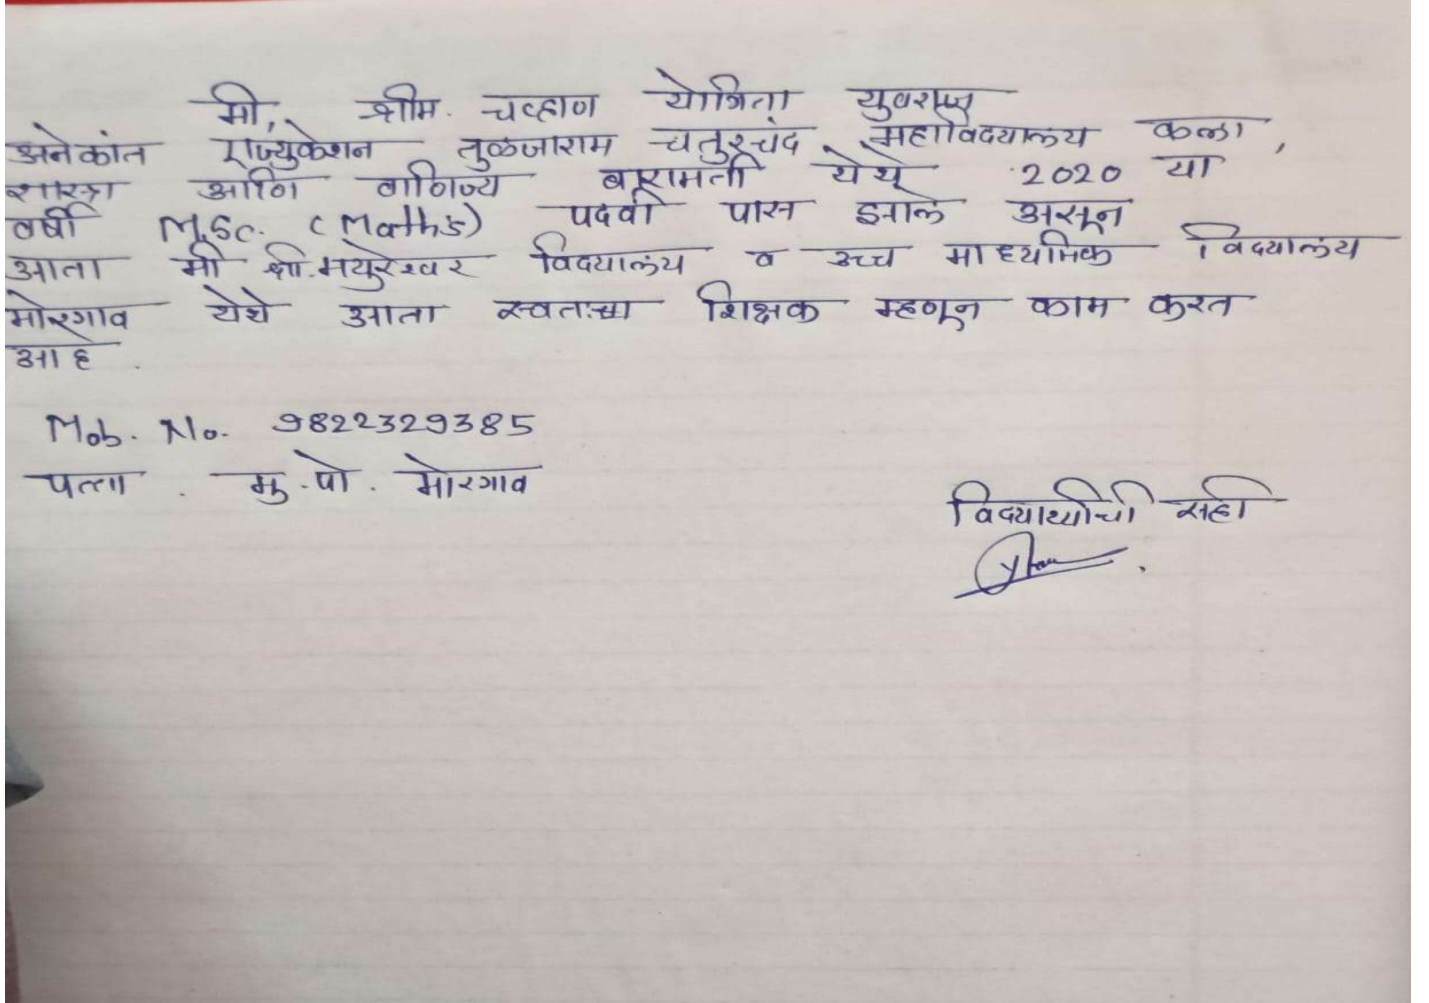 मी, श्रीम. चव्हाण योगिता युवराज
अनेकांत एज्युकेशन तुळजाराम चतुरचंद महाविदयालय कला,
शास्त्र आणि वाणिज्य बारामती येथे 2020 या
वर्षी M.Sc. (Math's) पदवी पास झाले असून
आता मी श्री.मयुरेश्वर विदयालय व उच्च माध्यमिक विदयालय
मोरगाव येथे आता स्वतःचा शिक्षक म्हणून काम करत
आहे.
Mob. No. 9822329385
पत्ता . मु.पो. मोरगाव
विदयार्थ्याची सही